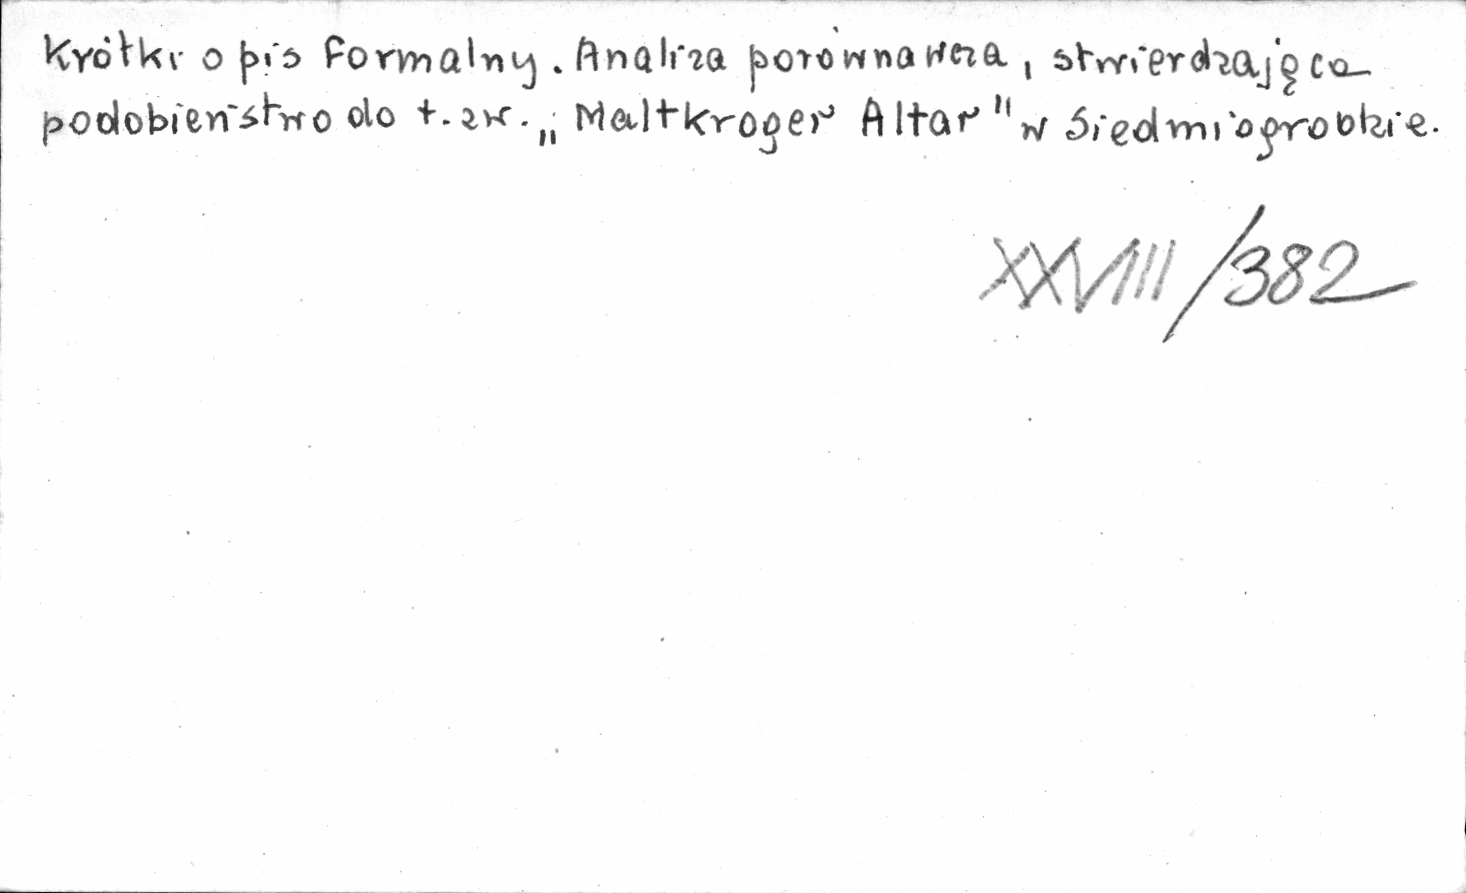 Krótki opis formalny. Analiza porównawcza, stwierdzająca
podobieństwo do t. zw. „Maltkroger Altar" w Siedmiogrodzie.
XXVIII/382